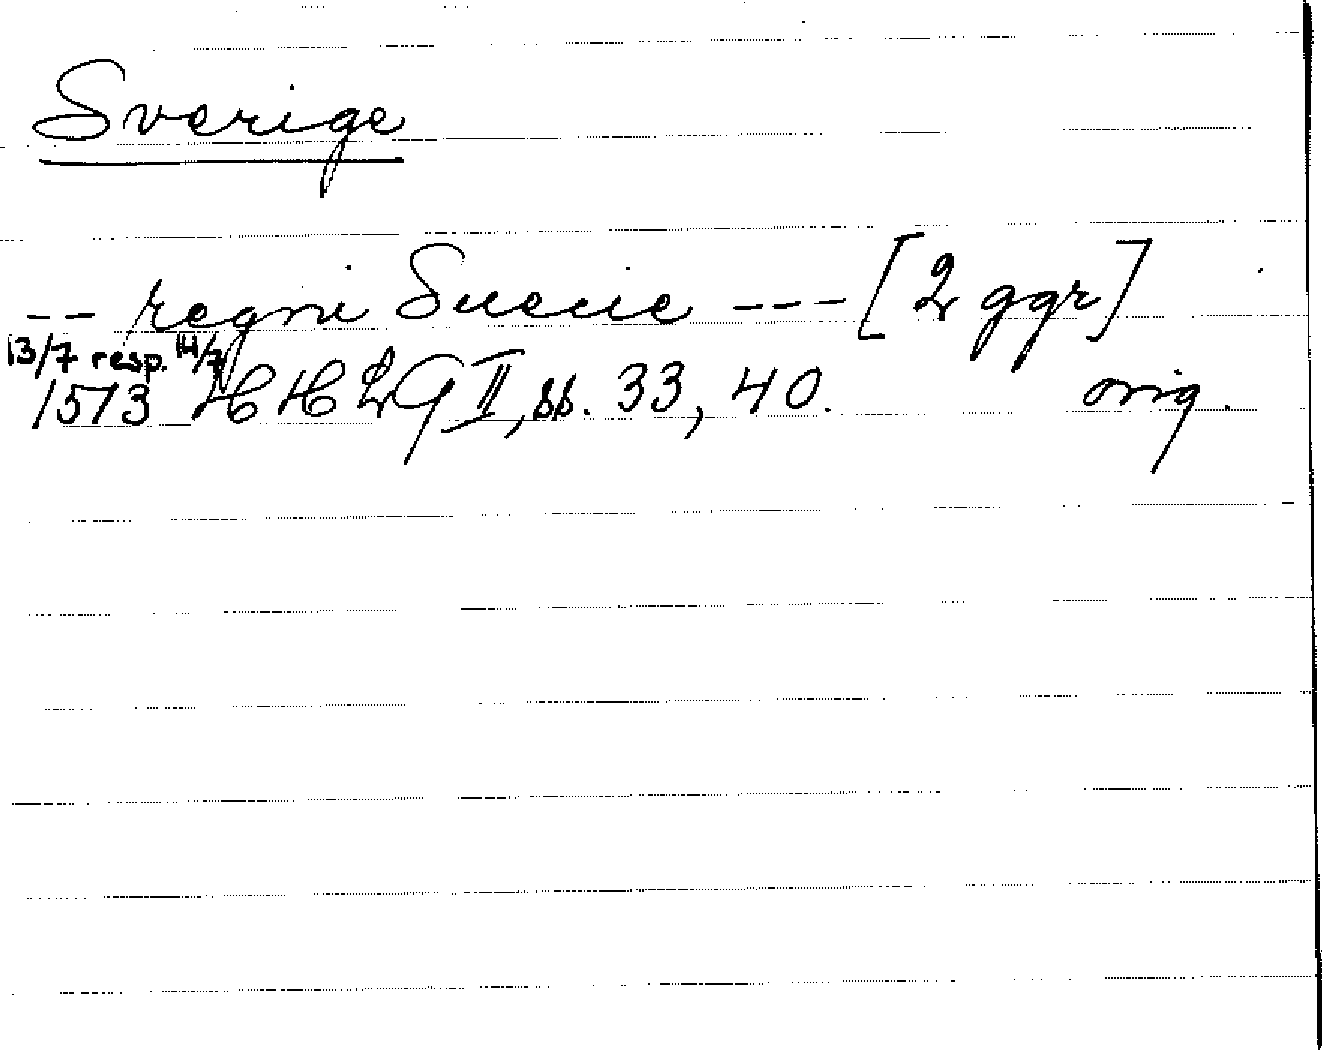 Sverige
-- regni Suecie --- [2 ggr]
13/7 resp. 14/7
1573 HH2G II, ss. 33, 40. orig.